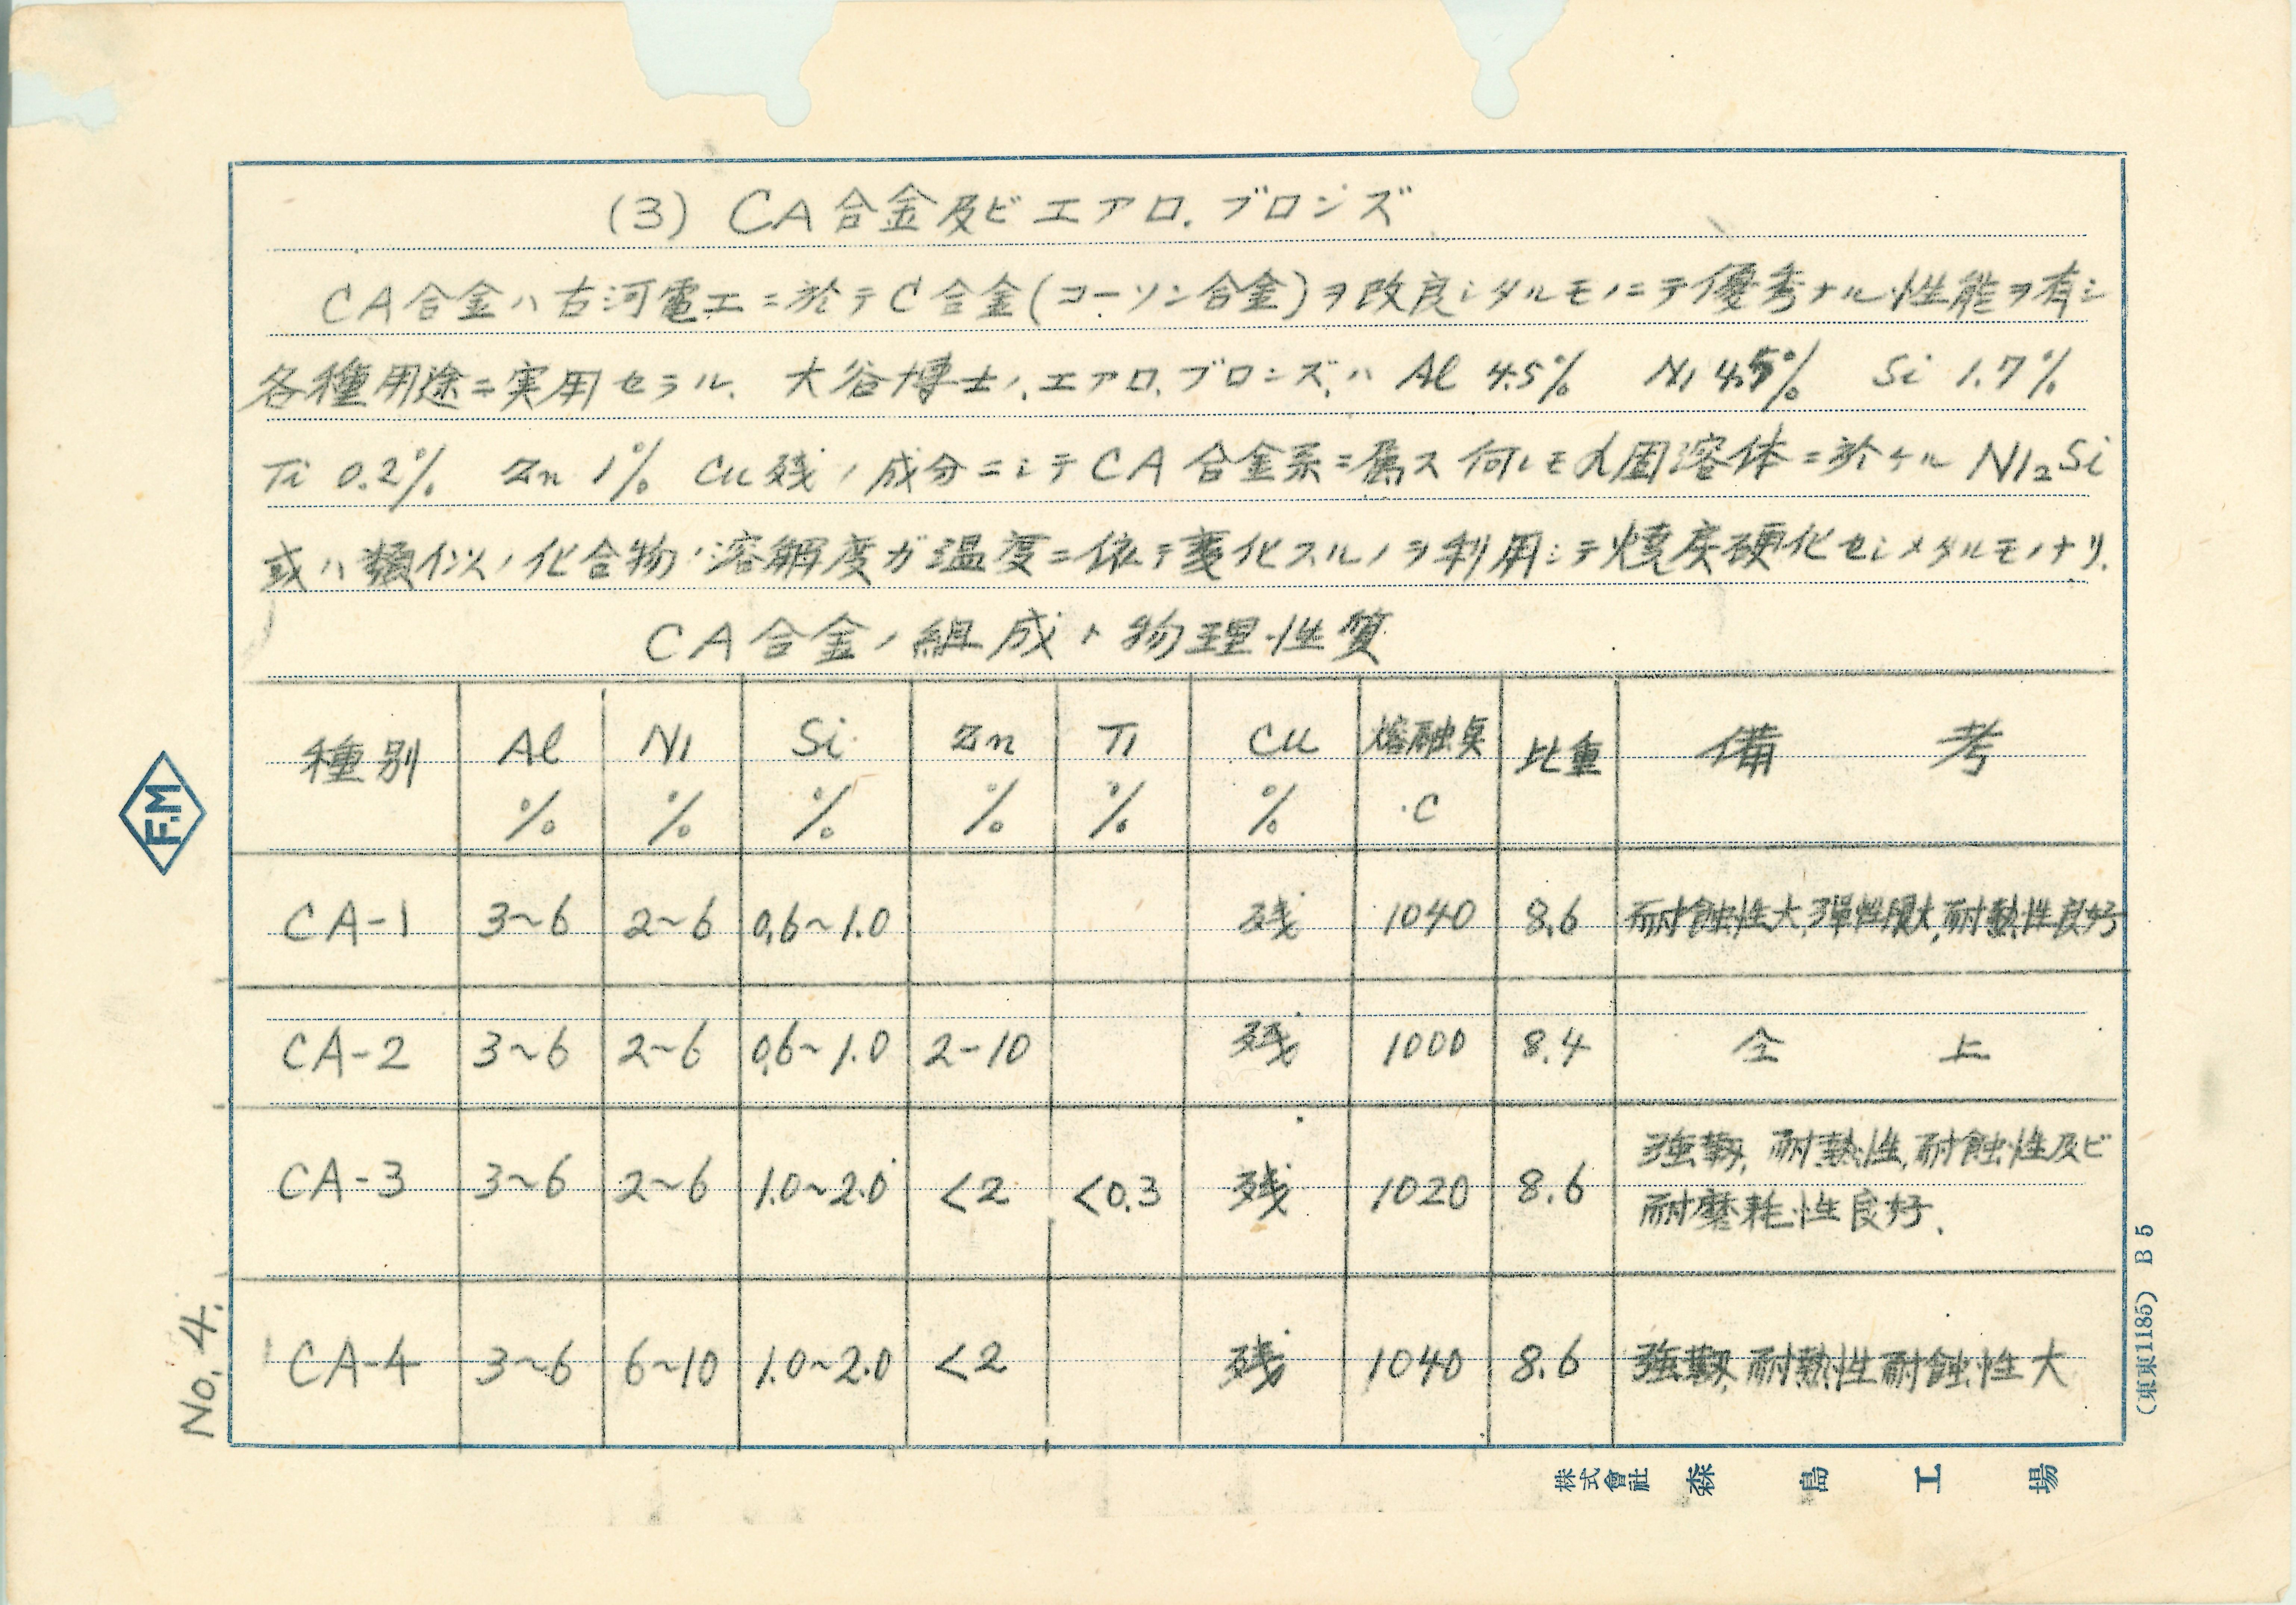 (3) CA合金及ビエアロ.ブロンズ
CA合金ハ古河電工ニ於テC合金(コーソン合金)ヲ改良シタルモノニテ優秀ナル性能ヲ有シ
各種用途ニ実用セラル. 大谷博士ノエアロ.ブロンズハ Al 4.5% Ni 4.5% Si 1.7%
Ti 0.2% Zn 1% Cu残ノ成分ニシテCA合金系ニ属ス何レモα固溶体ニ於ケルNi₂Si
或ハ類似ノ化合物ノ溶解度ガ温度ニ依テ変化スルノヲ利用シテ焼戻硬化セシメタルモノナリ.
CA合金ノ組成ト物理性質
種別 Al % Ni % Si % Zn % Ti % Cu % 熔融点 °C 比重 備考
CA-1 3~6 2~6 0.6~1.0 残 1040 8.6 耐蝕性大,弾性限大,耐熱性良好
CA-2 3~6 2~6 0.6~1.0 2-10 残 1000 8.4 仝上
CA-3 3~6 2~6 1.0~2.0 <2 <0.3 残 1020 8.6 強靱,耐熱性,耐蝕性及ビ
耐磨耗性良好.
CA-4 3~6 6~10 1.0~2.0 <2 残 1040 8.6 強靱,耐熱性耐蝕性大
No. 4.
F.M
株式會社 森島工場
(東東1185) B5